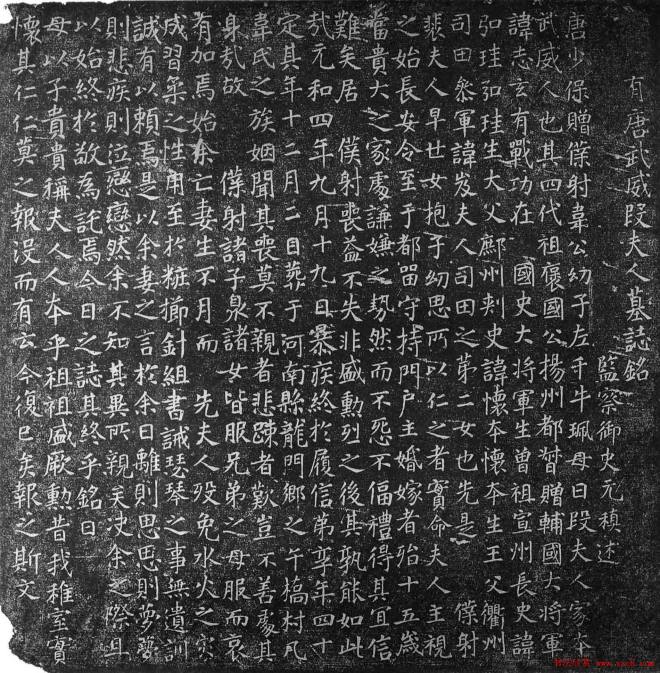 有唐武威段夫人墓誌銘
監察御史元稹述
唐少保贈僕射韋公幼子左千牛珮母曰段夫人家本
武威人也其四代祖襃國公揚州都督贈輔國大將軍
諱志玄有戰功在 國史大將軍生曾祖宣州長史諱
弘珪弘珪生大父鄜州刾史諱懷夲懷夲生王父衢州
司田叅軍諱岌夫人司田之第二女也先是 僕射
裴夫人早世女抱子幼思所以仁之者實命夫人主視
之始長安令至于都留守持門户主婚嫁者殆十五歲
當貴大之家處謙嫌之勢然而不怨不偪禮得其宜信
難矣居 僕射喪益不失非盛勳烈之後其孰能如此
㢤元和四年九月十九日暴疾終於履信弟享年四十
定其年十二月二日葬于河南縣龍門鄉之午橋村凡
韋氏之族姻聞其喪莫不親者悲踈者歎豈不善處其
身㢤故 僕射諸子泉諸女皆服兄弟之母服而哀
有加焉始余亡妻生不月而 先夫人歿免水火之灾
成習㮚之性用至於粧擳針組書誡琴瑟之事無遺訓
誠有以賴焉是以余妻之言於余曰離則思思則夢夢
則悲疾則泣戀戀然余不知其異所親矣决余之際且
以始終於敬爲託焉今日之誌其終乎銘曰
母以子貴貴稱夫人人本乎祖祖盛厥勳昔我稚室實
懷其仁仁莫之報沒而有云今復已矣報之斯文